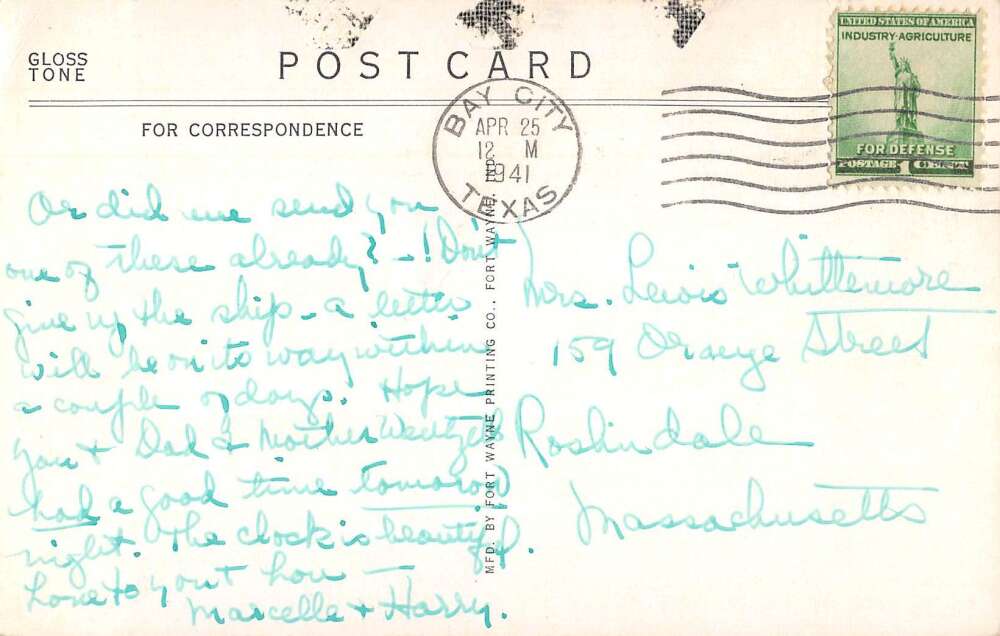 GLOSS
TONE
POST CARD
FOR CORRESPONDENCE
BAY CITY
APR 25
12 M
1941
TEXAS
UNITED STATES OF AMERICA
INDUSTRY-AGRICULTURE
FOR DEFENSE
POSTAGE 1 CENT
Or did we send you
one of these already? -! Don't
give up the ship - a letter
will be on its way within
a couple of days. Hope
you + Dad & Mother Wentzell
had a good time tomorrow
night. The clock is beautiful.
Love to you +
Marcelle + Harry.
MFD. BY FORT WAYNE PRINTING CO., FORT WAYNE, IND.
Mrs. Lewis Whittemore
159 Orange Street
Roslindale
Massachusetts